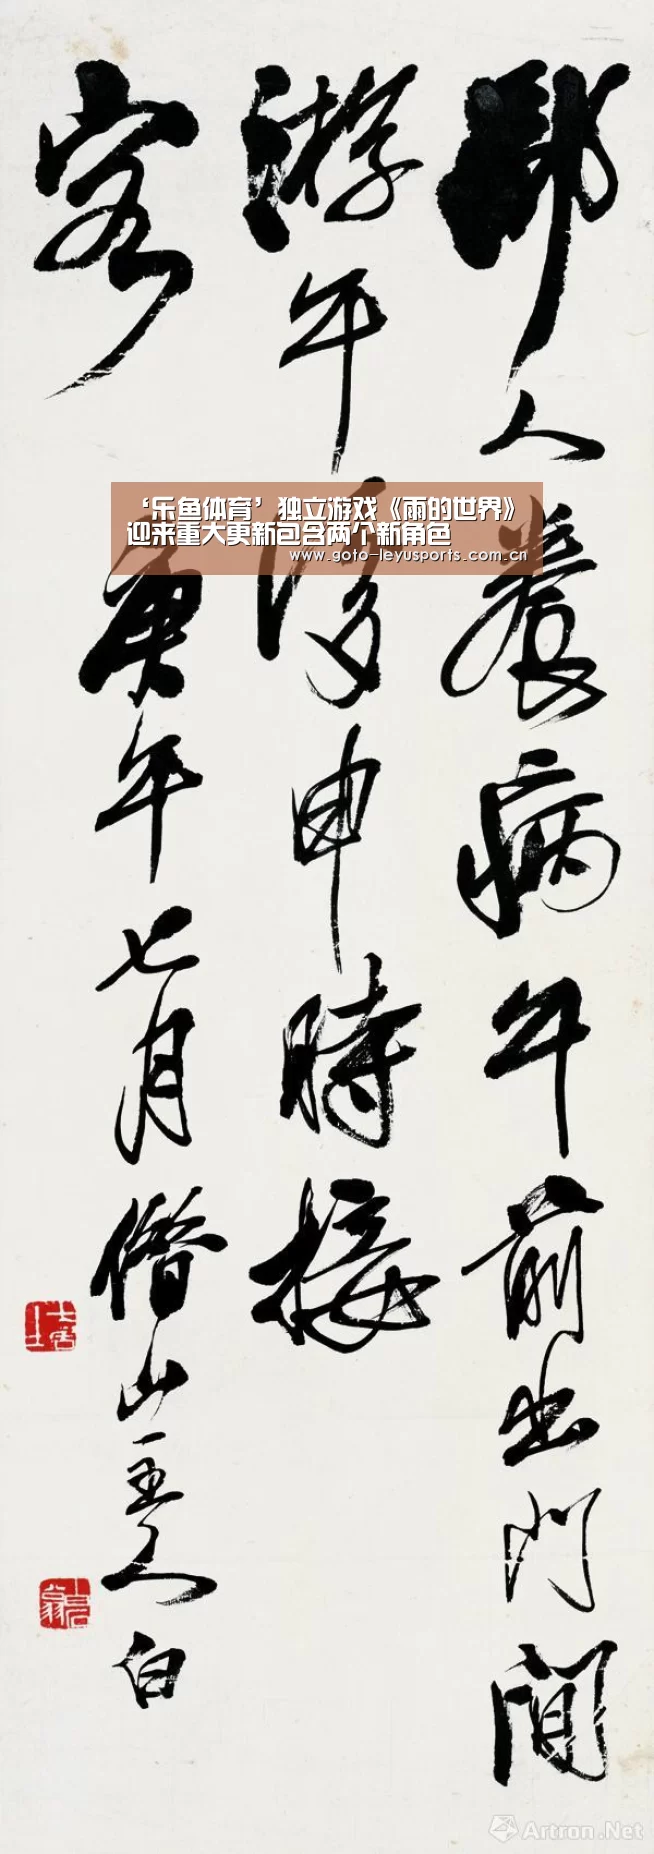 鄙人養病午前出門閒
游午後申時接
客
庚午七月僭山主人白
‘乐鱼体育’独立游戏《雨的世界》
迎来重大更新包含两个新角色
www.goto-leyusports.com.cn
Artron.Net